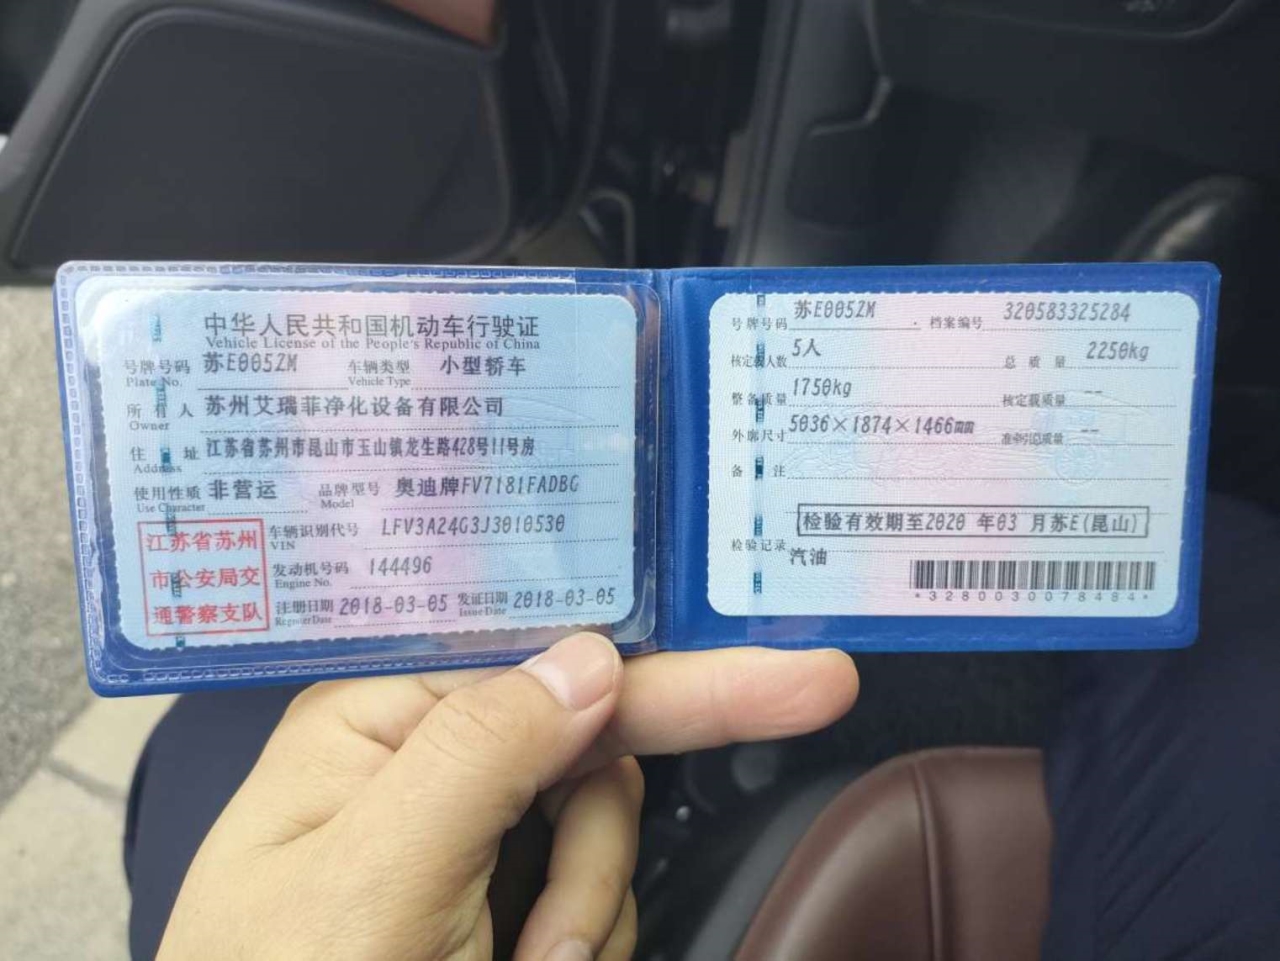 中华人民共和国机动车行驶证
Vehicle License of the People's Republic of China
号牌号码 苏E005ZM 车辆类型 小型轿车
Plate No. Vehicle Type
所有人 苏州艾瑞菲净化设备有限公司
Owner
住址 江苏省苏州市昆山市玉山镇龙生路428号11号房
Address
使用性质 非营运 品牌型号 奥迪牌FV7181FADBG
Use Character Model
江苏省苏州
市公安局交
通警察支队
车辆识别代号 LFV3A24G3J3010530
VIN
发动机号码 144496
Engine No.
注册日期 2018-03-05 发证日期 2018-03-05
Register Date Issue Date
号牌号码 苏E005ZM 档案编号 320583325284
核定载人数 5人 总质量 2250kg
整备质量 1750kg 核定载质量 --
外廓尺寸 5036×1874×1466mm 准牵引总质量 --
备注
检验有效期至2020 年03 月苏E(昆山)
检验记录
汽油
*3280030078484*